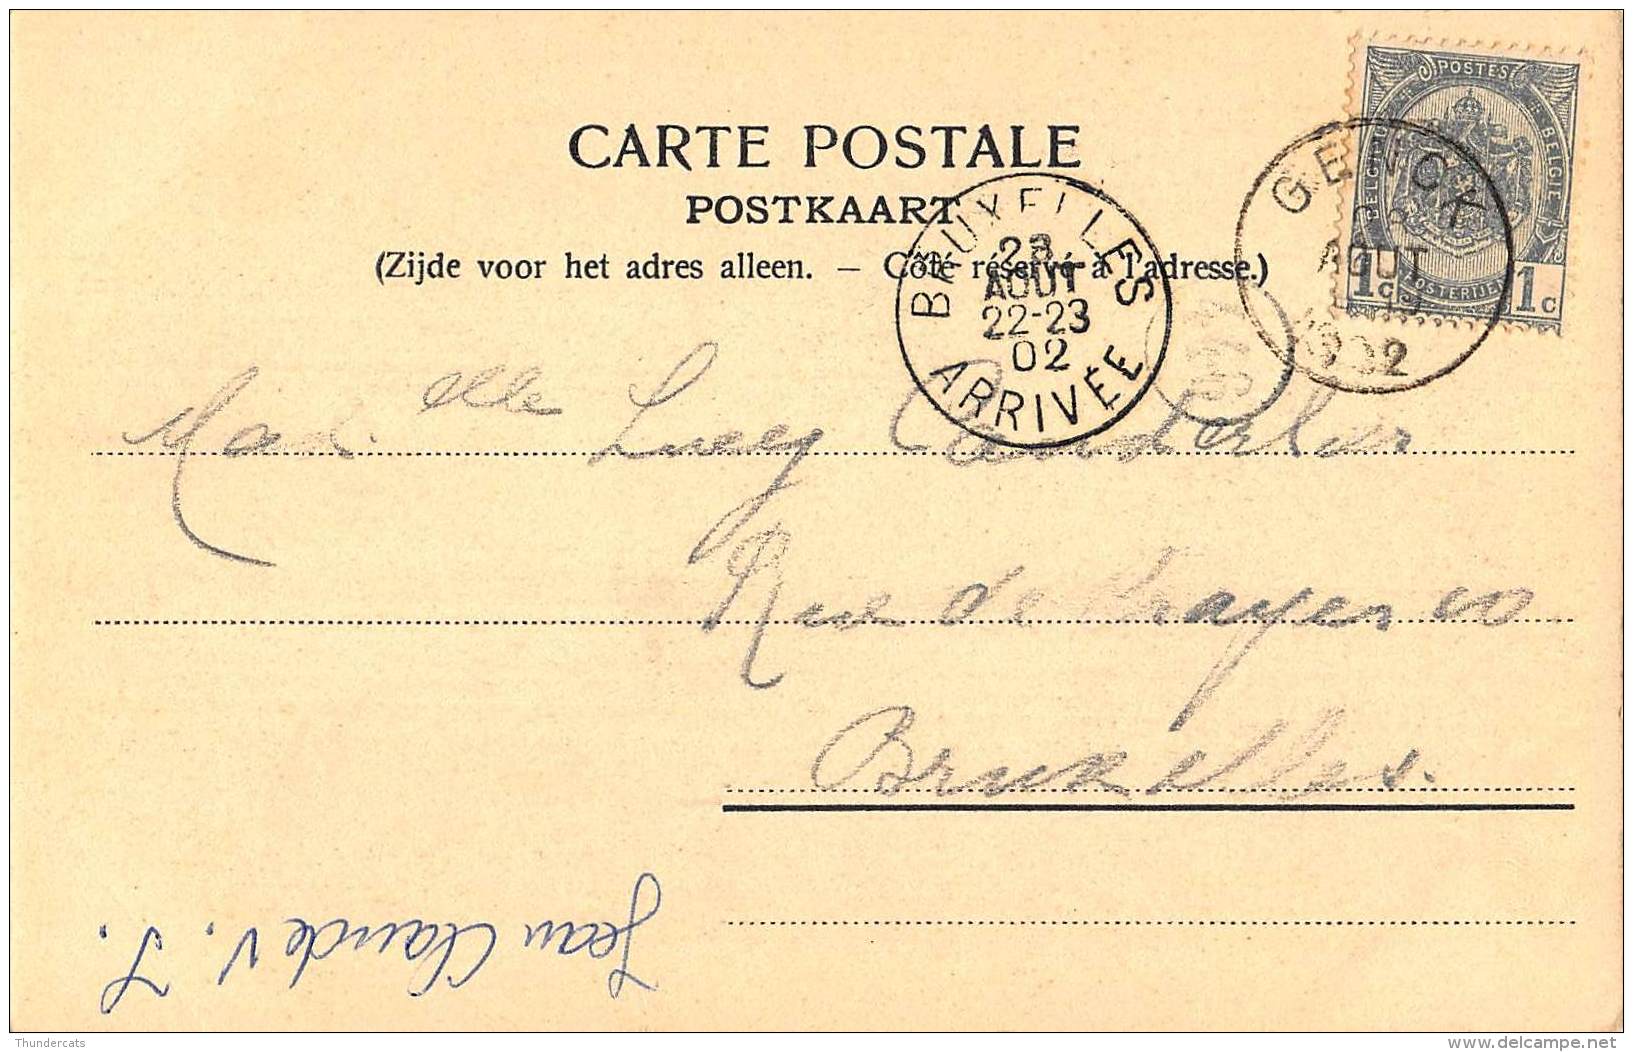 CARTE POSTALE
POSTKAART
(Zijde voor het adres alleen. – Côté réservé à l'adresse.)
POSTES
BELGIQUE BELGIE
POSTERIJEN
1c 1c
GENCK
AOUT
1902
BRUXELLES
23
AOUT
22-23
02
ARRIVÉE
Mad.elle Lucy
Rue de
Bruxelles.
Jean Claude V. J.
Thundercats
delcampe.net